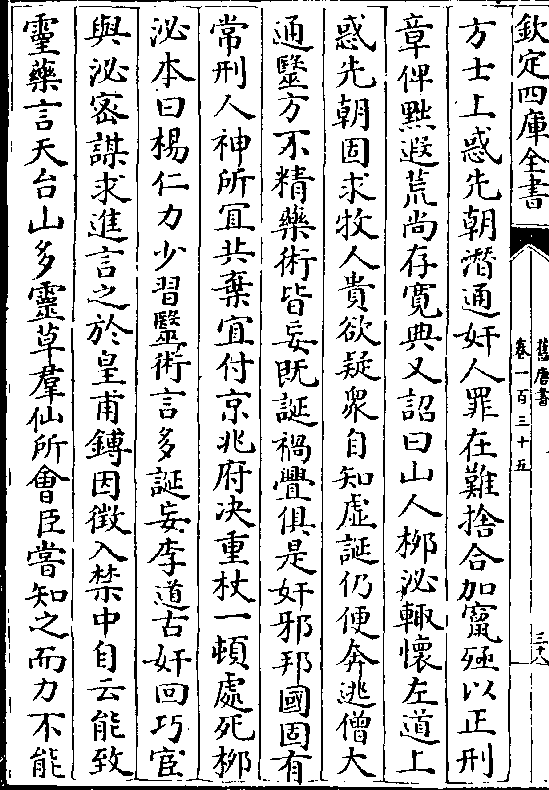 欽定四庫全書
舊唐書
卷一百三十五
三十八
方士上惑先朝潛通奸人罪在難捨合加竄殛以正刑
章俾黜遐荒尚存寛典又詔曰山人栁泌輒懷左道上
惑先朝固求牧人貴欲疑衆自知虚誕仍便奔逃僧大
通毉方不精藥術皆妄既誕禍釁俱是奸邪邦國固有
常刑人神所冝共棄宜付京兆府决重杖一頓處死栁
泌本曰楊仁力少習毉術言多誕妄李道古奸回巧宦
與泌密謀求進言之於皇甫鎛因徴入禁中自云能致
靈藥言天台山多靈草羣仙所會臣嘗知之而力不能